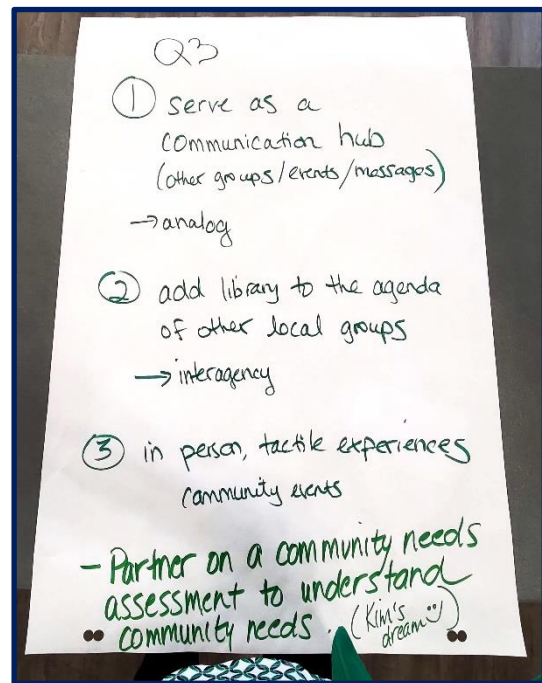 Q3
① serve as a
communication hub
(other groups/events/messages)
→ analog
② add library to the agenda
of other local groups
→ interagency
③ in person, tactile experiences
community events
- Partner on a community needs
assessment to understand
community needs. (Kim's
dream☺)